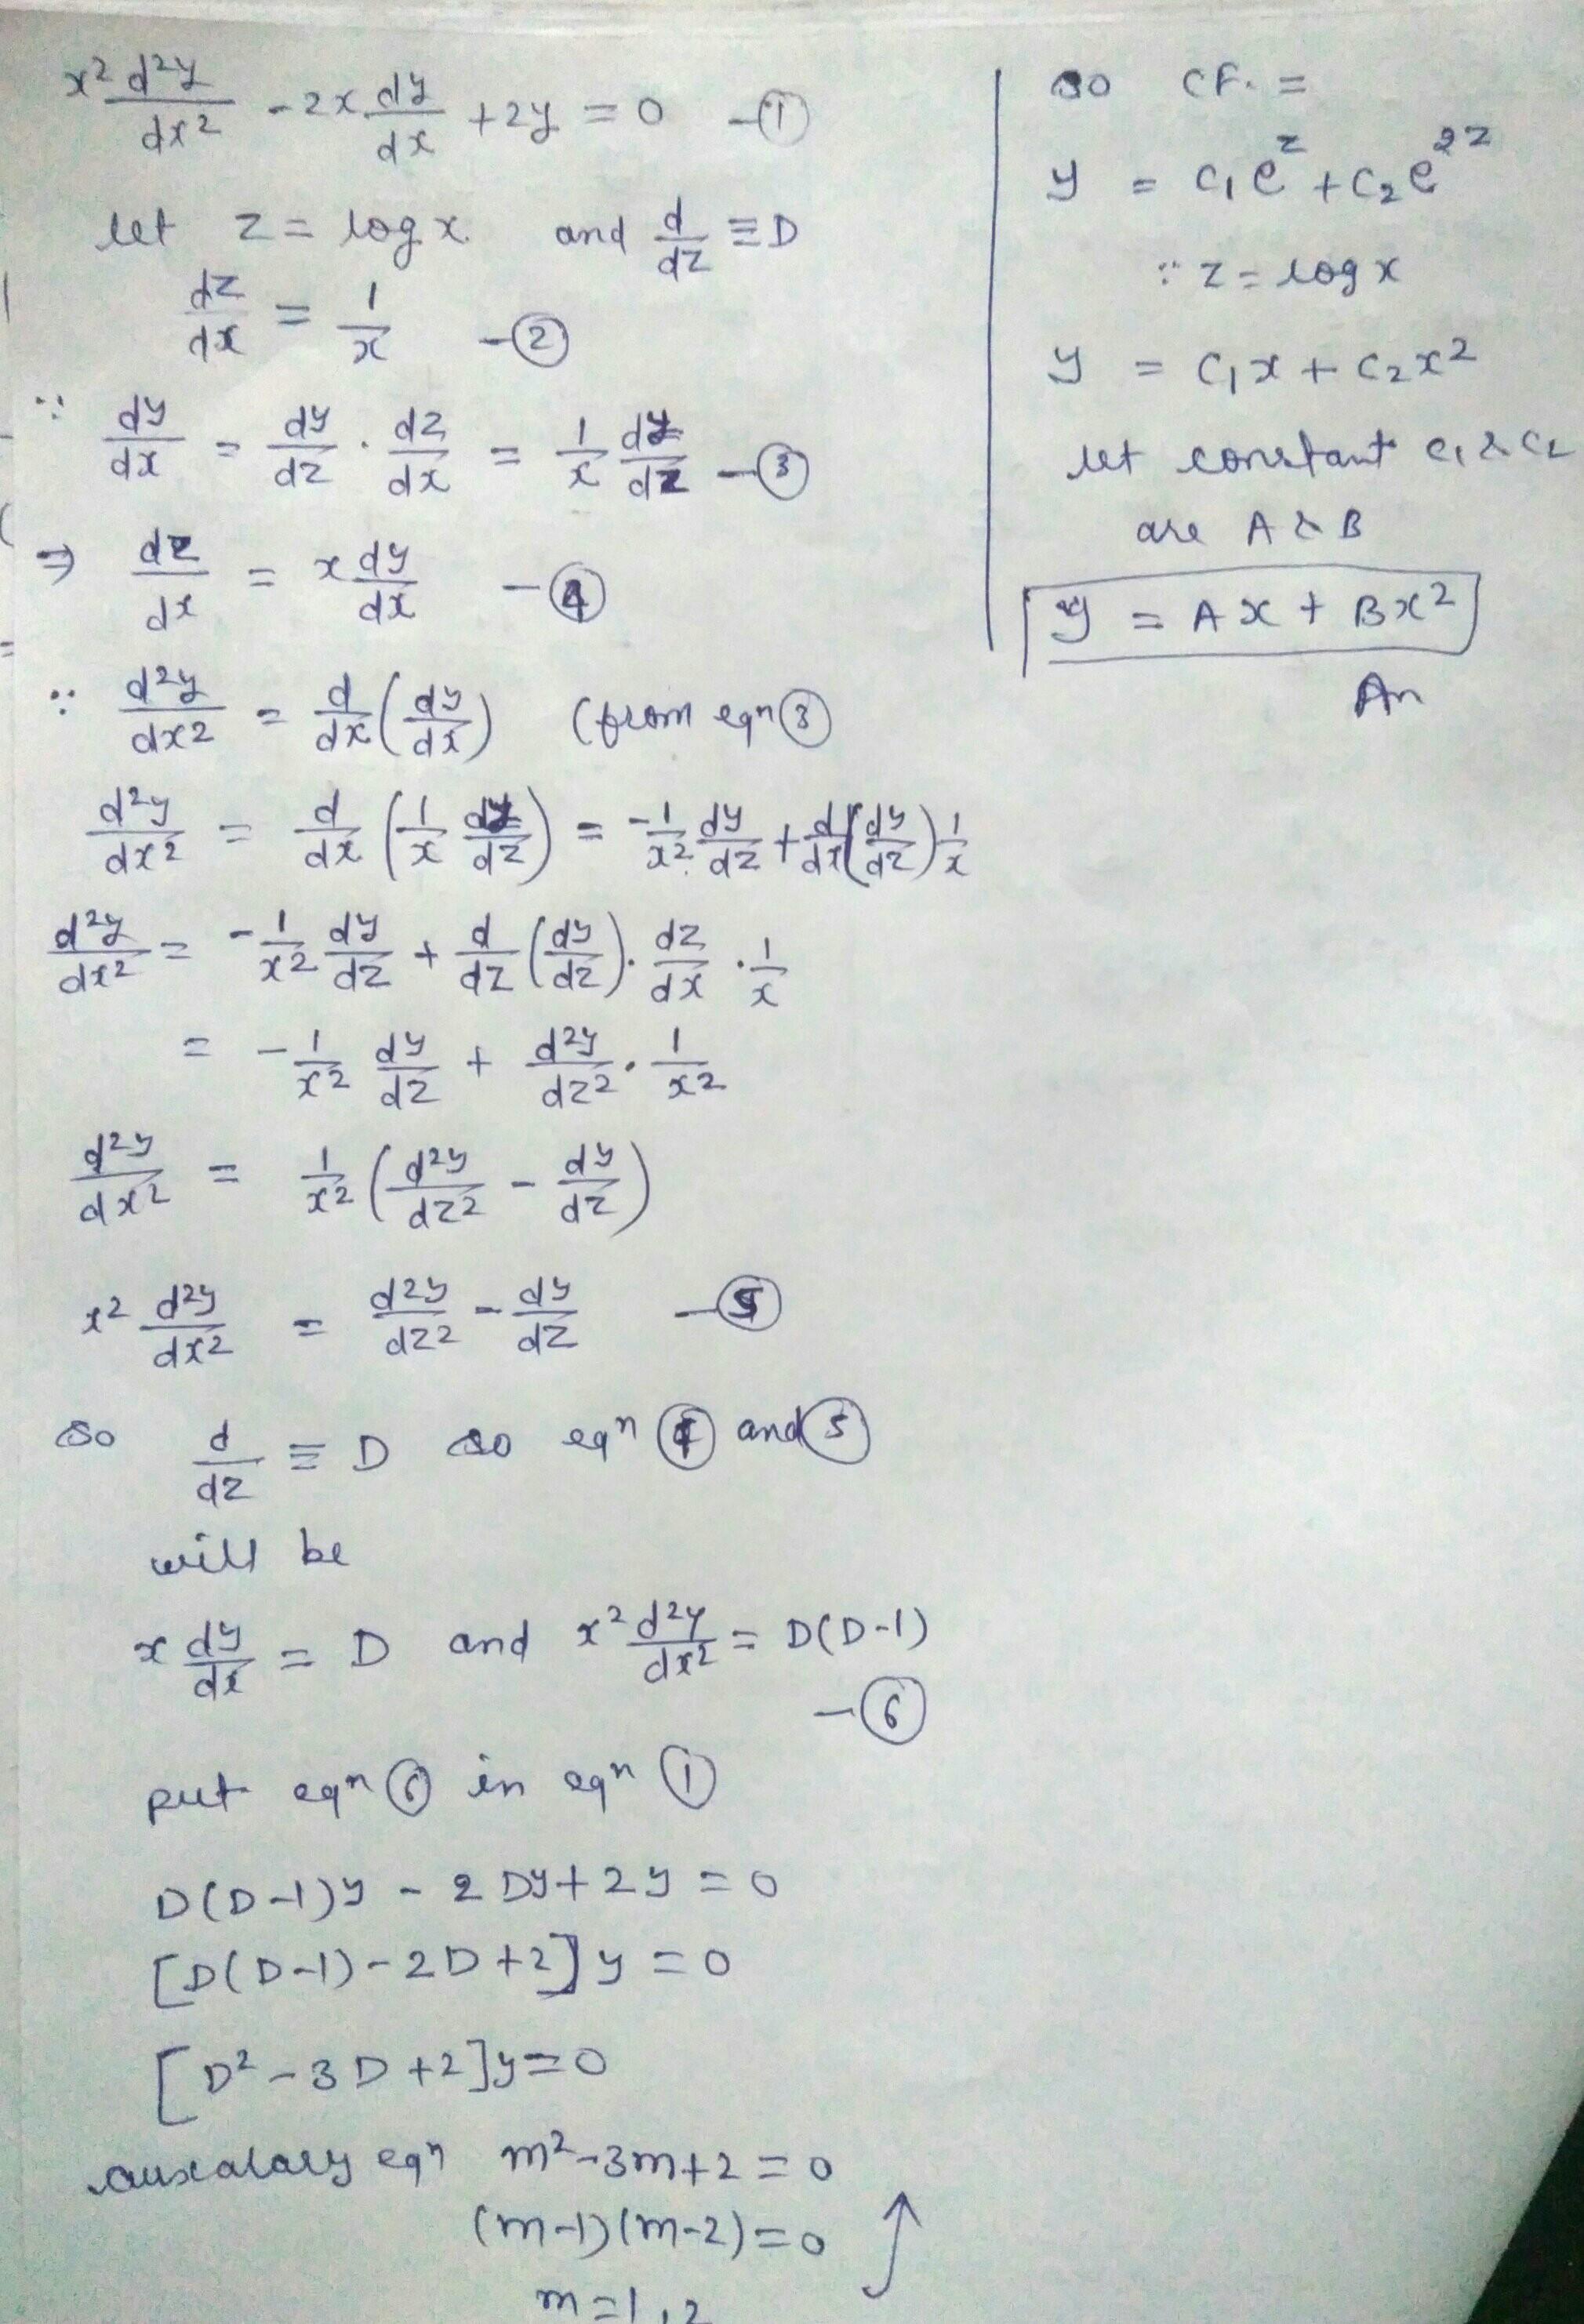 x² d²y/dx² - 2x dy/dx + 2y = 0 -①
let z = log x and d/dz ≡ D
dz/dx = 1/x -②
∵ dy/dx = dy/dz . dz/dx = 1/x dy/dz -③
⇒ dz/dx = x dy/dx -④
∵ d²y/dx² = d/dx (dy/dx) (from eqn ③
d²y/dx² = d/dx (1/x dy/dz) = -1/x² dy/dz + d/dx (dy/dz) 1/x
d²y/dx² = -1/x² dy/dz + d/dz (dy/dz) . dz/dx . 1/x
= -1/x² dy/dz + d²y/dz² . 1/x²
d²y/dx² = 1/x² (d²y/dz² - dy/dz)
x² d²y/dx² = d²y/dz² - dy/dz -⑤
so d/dz ≡ D so eqn ④ and ⑤
will be
x dy/dx = D and x² d²y/dx² = D(D-1)
-⑥
put eqn ⑥ in eqn ①
D(D-1)y - 2Dy + 2y = 0
[D(D-1) - 2D + 2] y = 0
[D² - 3D + 2] y = 0
auxalary eqn m² - 3m + 2 = 0
(m-1)(m-2) = 0
m = 1, 2
so CF. =
y = c₁e^z + c₂e^2z
∵ z = log x
y = c₁x + c₂x²
let constant c₁ & c₂
are A & B
y = Ax + Bx²
An